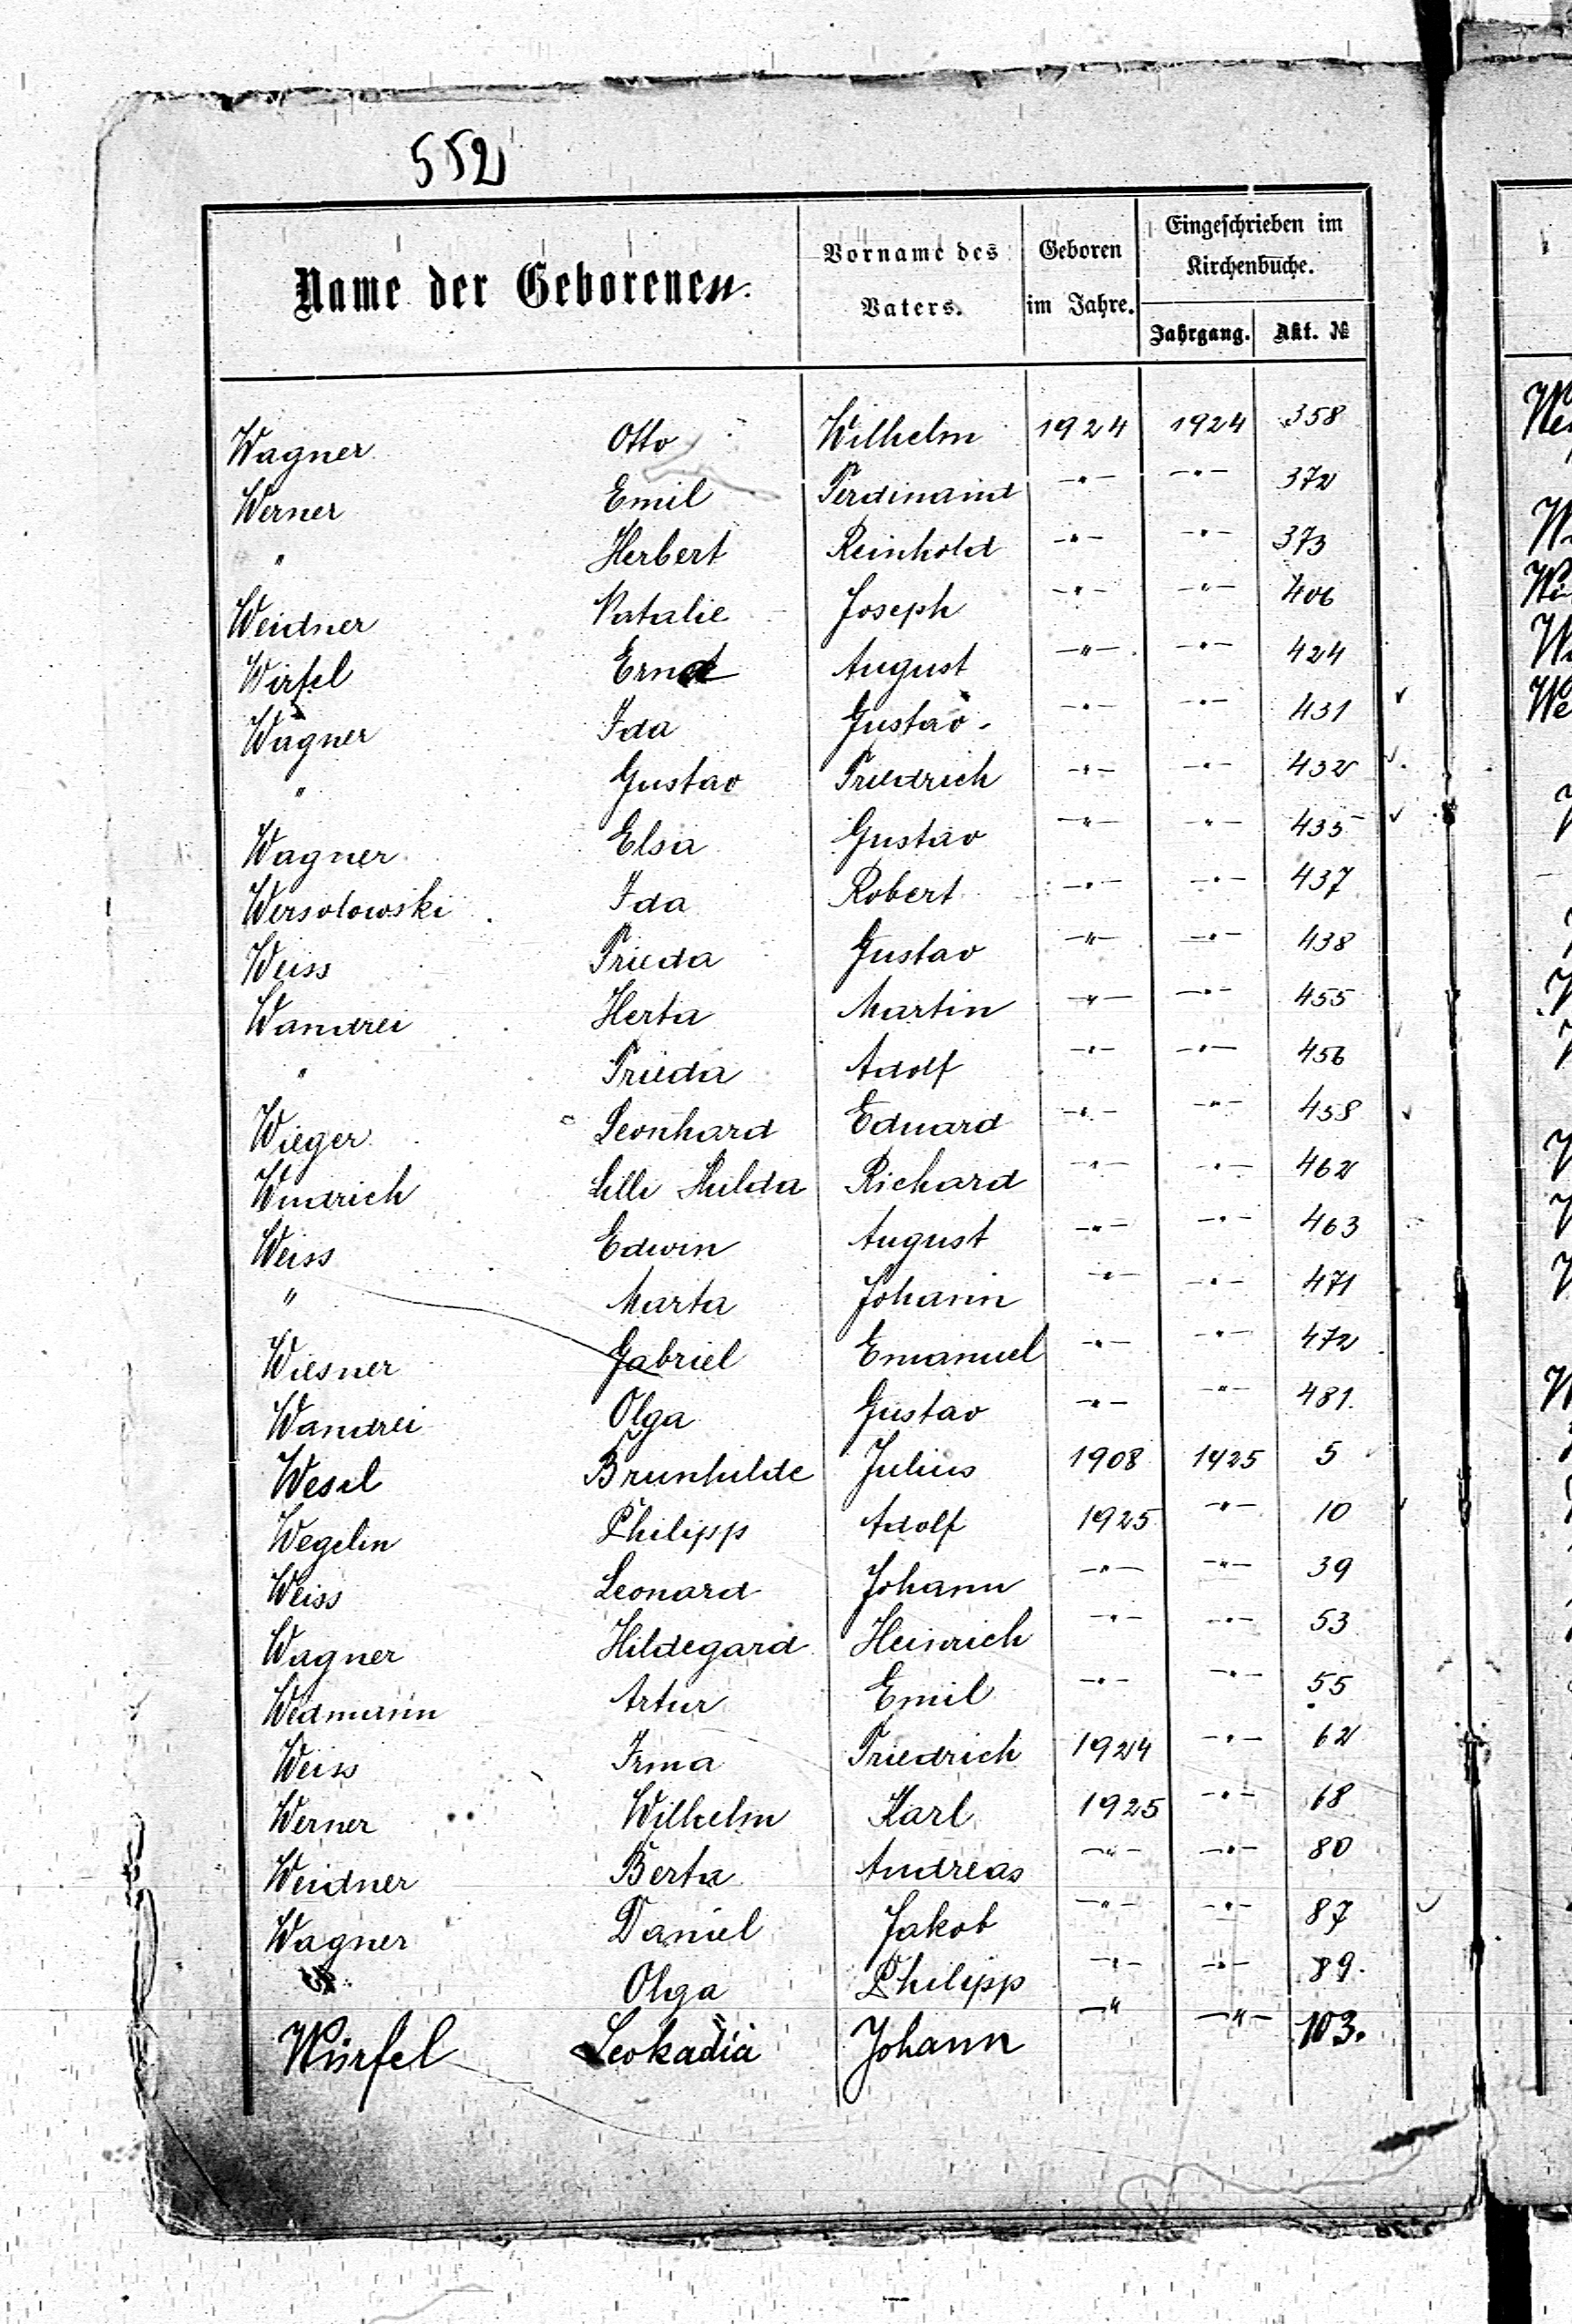 552
Name der Geborenen. Vorname des Vaters. Geboren im Jahre. Eingeschrieben im Kirchenbuche.
Jahrgang. Akt. №
Wagner Otto Wilhelm 1924 1924 358
Werner Emil Ferdinand -"- -"- 372
" Herbert Reinhold -"- -"- 373
Weidner Natalie Joseph -"- -"- 406
Wirfel Ernst August -"- -"- 424
Wagner Ida Gustav -"- -"- 431
" Gustav Friedrich -"- -"- 432
Wagner Elsa Gustav -"- -"- 435
Wersolowski Ida Robert -"- -"- 437
Weiss Frieda Gustav -"- -"- 438
Wandrei Herta Martin -"- -"- 455
" Frieda Adolf -"- -"- 456
Wieger Leonhard Eduard -"- -"- 458
Windrich Lilli Hulda Richard -"- -"- 462
Weiss Edwin August -"- -"- 463
" Marta Johann -"- -"- 471
Wiesner Gabriel Emanuel -"- -"- 472
Wandrei Olga Gustav -"- -"- 481.
Wesel Brunhilde Julius 1908 1925 5
Wegelin Philipp Adolf 1925 -"- 10
Weiss Leonard Johann -"- -"- 39
Wagner Hildegard Heinrich -"- -"- 53
Wedmann Artur Emil -"- -"- 55
Weiss Irma Friedrich 1924 -"- 62
Werner Wilhelm Karl 1925 -"- 68
Weidner Berta Andreas -"- -"- 80
Wagner Daniel Jakob -"- -"- 87
Olga Philipp -"- -"- 89.
Würfel Leokadia Johann -" -"- 103.